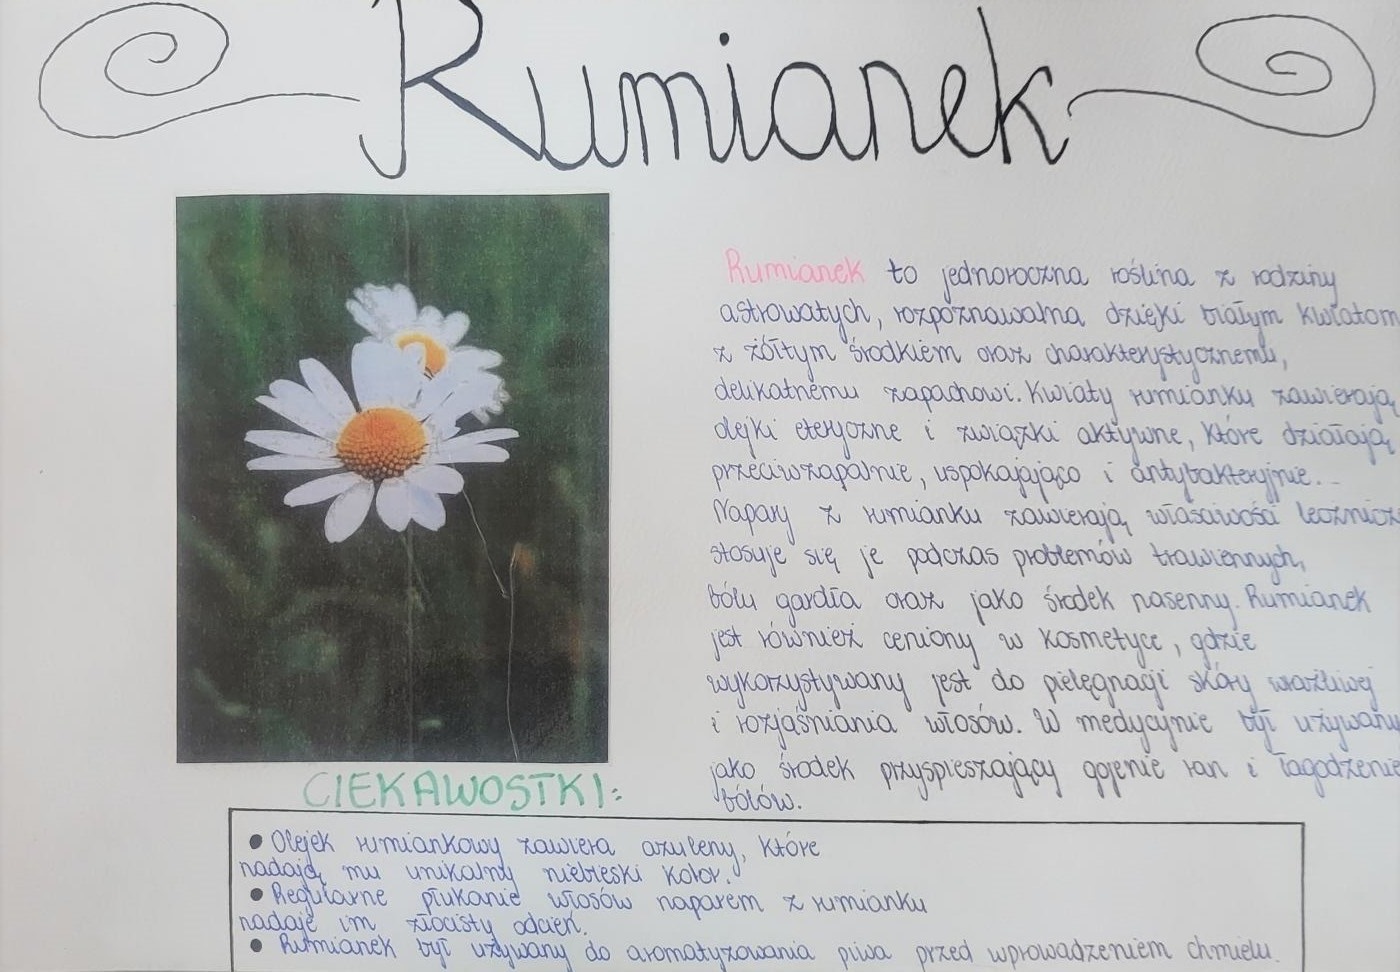 Rumianek
Rumianek to jednoroczna roślina z rodziny
astrowatych, rozpoznawalna dzięki białym kwiatom
z żółtym środkiem oraz charakterystycznemu,
delikatnemu zapachowi. Kwiaty rumianku zawierają
olejki eteryczne i związki aktywne, które działają
przeciwzapalnie, uspokajająco i antybakteryjnie.
Napary z rumianku zawierają właściwości
stosuje się je podczas problemów trawiennych,
bólu gardła oraz jako środek nasenny. Rumianek
jest również ceniony w kosmetyce, gdzie
wykorzystywany jest do pielęgnacji skóry wrażliwej
i rozjaśniania włosów. W medycynie był używany
jako środek przyspieszający gojenie ran i łagodzenie
bólów.
CIEKAWOSTKI:
• Olejek rumiankowy zawiera azuleny, które
nadają mu unikalny niebieski kolor.
• Regularne płukanie włosów naparem z rumianku
nadaje im złocisty odcień.
• Rumianek był używany do aromatyzowania piwa przed wprowadzeniem chmielu.